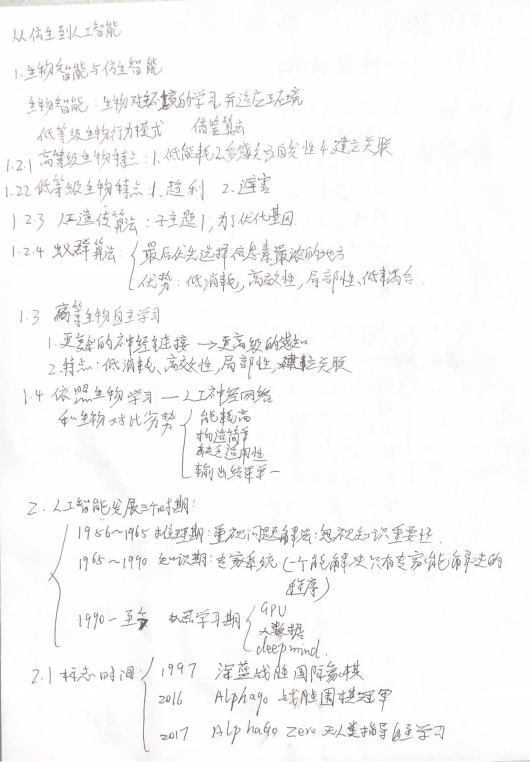 从仿生到人工智能
1.生物智能与仿生智能
生物智能:生物对环境的学习并适应环境
低等级生物行为模式 借鉴算法
1.2.1 高等级生物特点:1.低能耗2.多感关系自发性4.建立关联
1.2.2 低等级生物特点:1.趋利 2.避害
1.2.3 遗传算法:子主题1,为了优化基因
1.2.4 蚁群算法:
最后优先选择信息素最浓的地方
优势:低消耗,高效性,局部性,低耦合.
1.3 高等生物自主学习
1.更复杂的神经连接→更高级的感知
2.特点:低消耗、高效性,局部性,建立关联
1.4 依照生物学习—人工神经网络
和生物对比劣势
能耗高
构造简单
缺乏适用性
输出结果单一
2.人工智能发展三个时期:
1956~1965 推理期:重视问题解法:忽视知识重要性.
1965~1990 知识期:专家系统(一个能解决只有专家能解决的
程序)
1990-至今 机器学习期
GPU
大数据
deepmind.
2.1标志时间:
1997 深蓝战胜国际象棋
2016 Alphago 战胜围棋冠军
2017 AlphaGo Zero 无人类指导自主学习